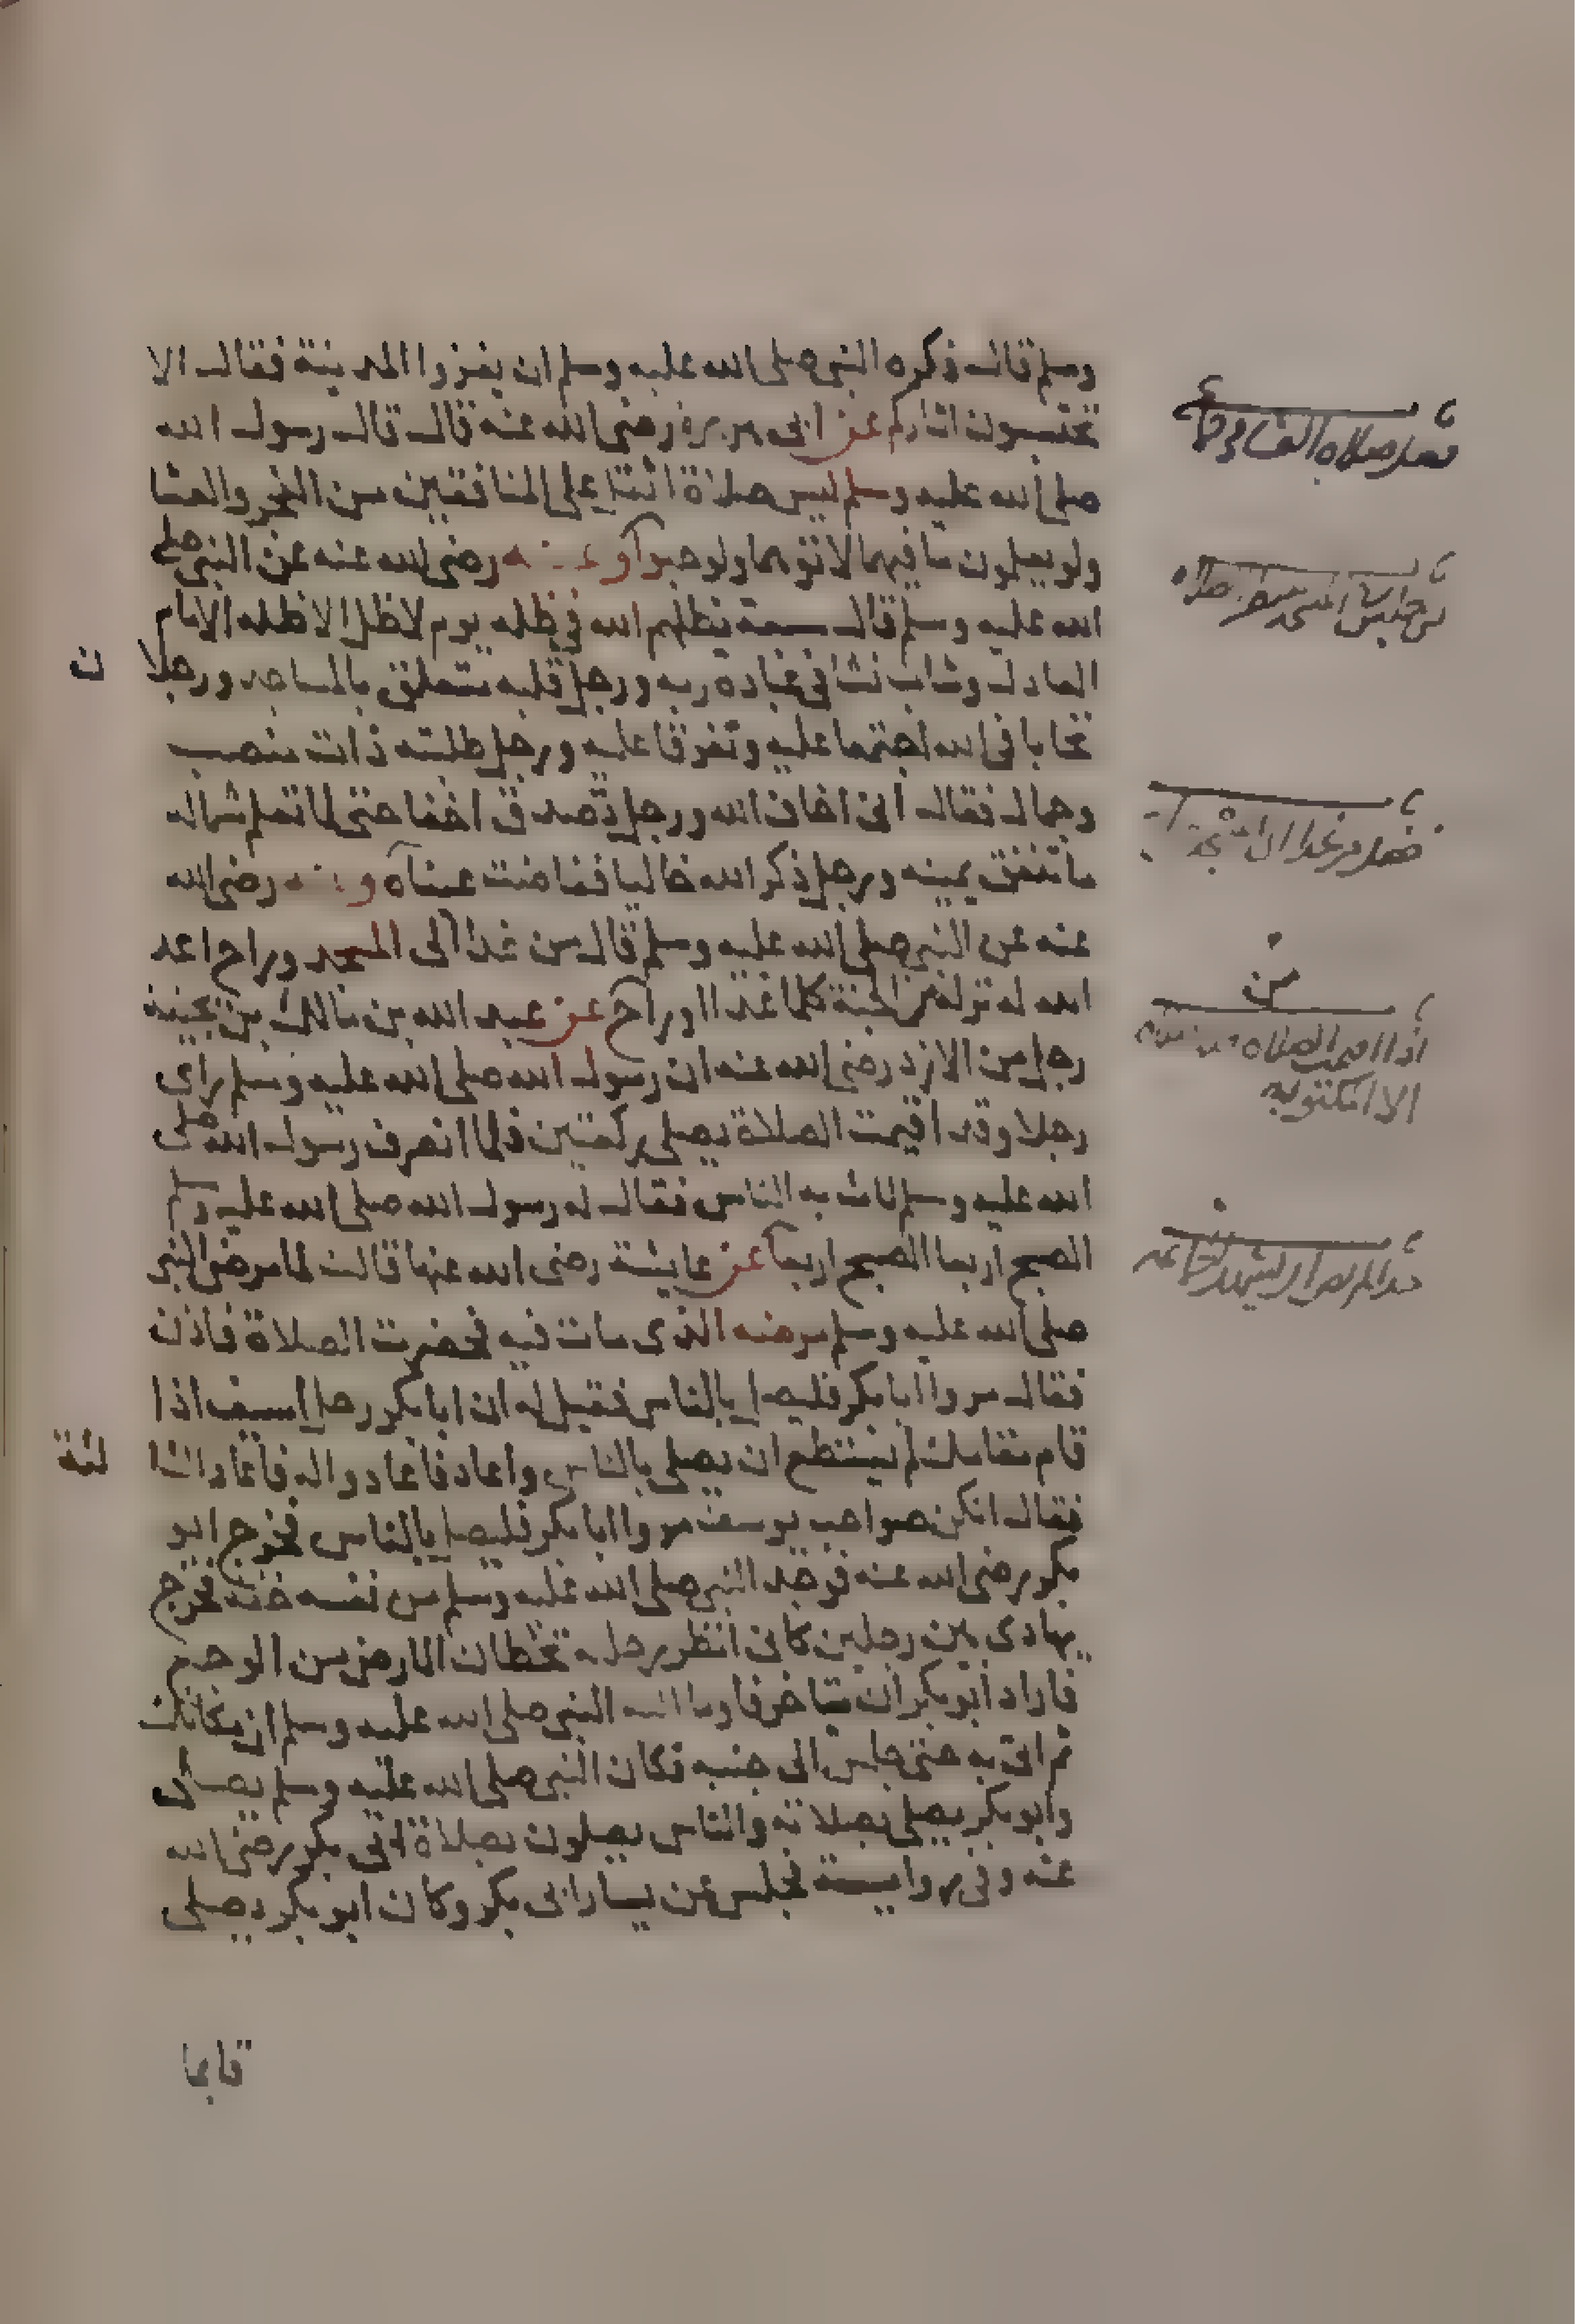 وسلم قال فكره النبي صلى الله عليه وسلم ان يعروا المدينة فقال الا
تحتسبون اثاركم عن ابى هريرة رضى الله عنه قال قال رسول الله
صلى الله عليه وسلم ليس صلاة اثقل على المنافقين من الفجر والعشا
ولو يعلمون ما فيهما لاتوهما ولو حبوا وعنه رضى الله عنه عن النبي صلى
الله عليه وسلم قال سبعة يظلهم الله في ظله يوم لا ظل الا ظله الامام
العادل وشاب نشا في عبادة ربه ورجل قلبه متعلق بالمساجد ورجلا
ن
تحابا فى الله اجتمعا عليه وتفرقا عليه ورجل طلبته ذات منصب
وجمال فقال انى اخاف الله ورجل تصدق اخفا حتى لا تعلم شماله
ما تنفق يمينه ورجل ذكر الله خاليا ففاضت عيناه وعنه رضى الله
عنه عن النبي صلى الله عليه وسلم قال من غدا الى المسجد وراح اعد
الله له نزله من الجنة كلما غدا او راح عن عبد الله بن مالك بن بحينة
رجل من الازد رضى الله عنه ان رسول الله صلى الله عليه وسلم راى
رجلا وقد اقيمت الصلاة يصلى ركعتين فلما انصرف رسول الله صلى
الله عليه وسلم لاث به الناس فقال له رسول الله صلى الله عليه وسلم
الصبح اربعا الصبح اربعا عن عايشة رضى الله عنها قالت لما مرض النبي
صلى الله عليه وسلم مرضه الذى مات فيه فحضرت الصلاة فاذن
فقال مروا ابا بكر فليصل بالناس فقيل له ان ابا بكر رجل اسيف اذا
قام مقامك لم يستطع ان يصلى بالناس واعاد فاعادوا له فاعاد الثا
لثة
فقال انكن صواحب يوسف مروا ابا بكر فليصل بالناس فخرج ابو
بكر رضى الله عنه فوجد النبي صلى الله عليه وسلم من نفسه خفة فخرج
يهادى بين رجلين كانى انظر رجليه تخطان الارض من الوجع
فاراد ابو بكر ان يتاخر فاوما اليه النبي صلى الله عليه وسلم ان مكانك
ثم اتى به حتى جلس الى جنبه فكان النبي صلى الله عليه وسلم يصلى
وابو بكر يصلى بصلاته والناس يصلون بصلاة ابى بكر رضى الله
عنه وفى رواية فجلس عن يسار ابى بكر وكان ابو بكر يصلى
قايما
فضل صلاة العشا فى جماعة
من جلس فى المسجد ينتظر الصلاة
فضل من غدا الى المسجد
اذا اقيمت الصلاة فلا صلاة
الا المكتوبه
حد المريض ان يشهد الجماعة